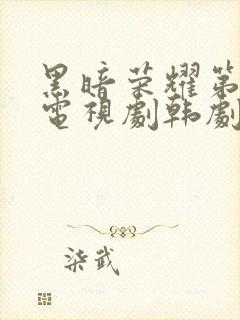 黑暗荣耀第
電視劇韩劇
柒武